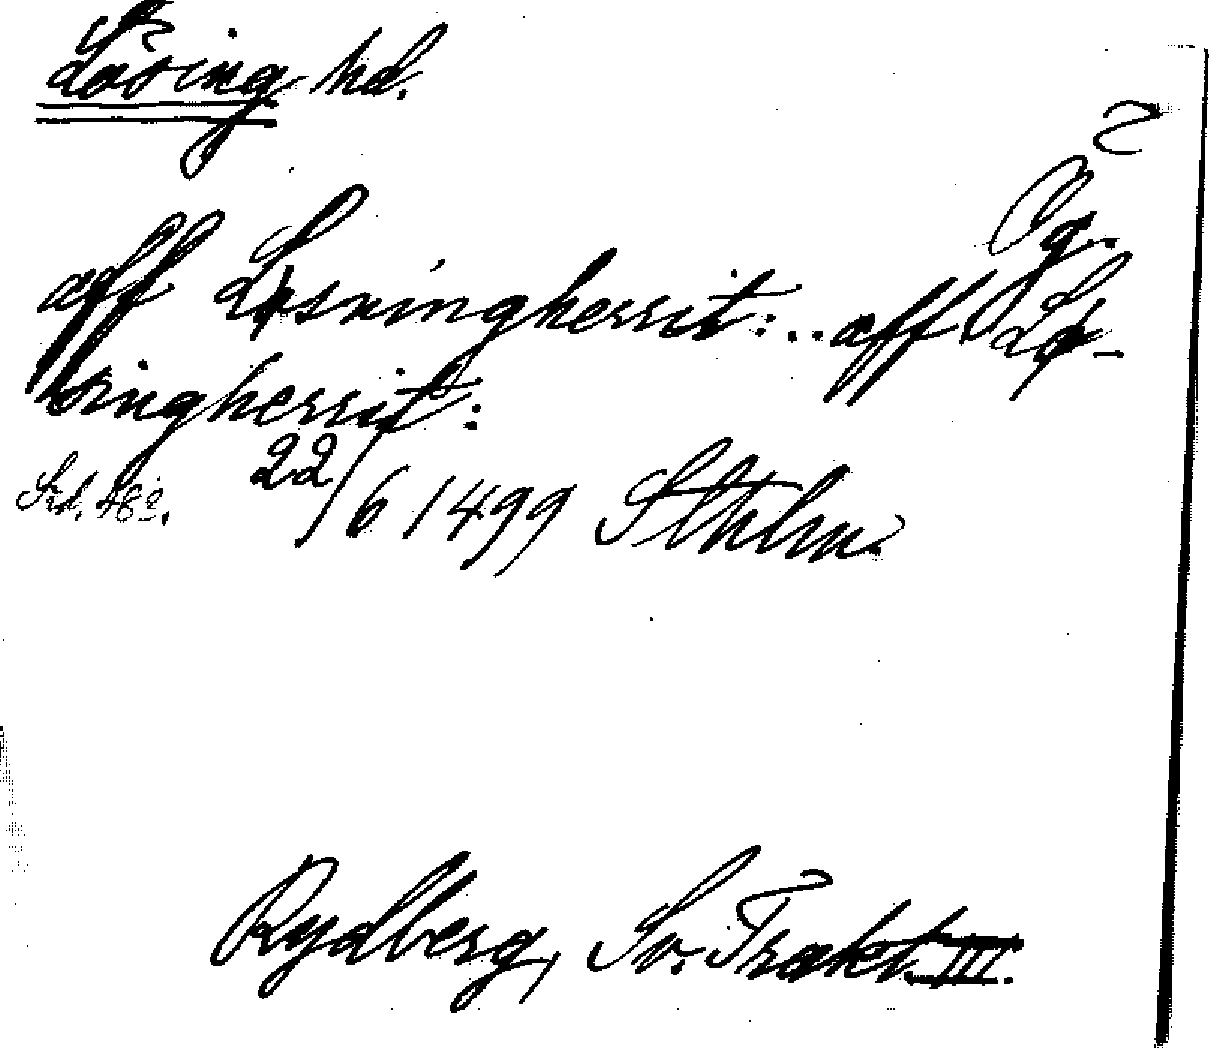 Lösing hd.
Ög.
aff Løsningherrit: .. aff Lø-
singherrit:
Srd. 482. 22/6 1499 Sthlm.
Rydberg, Sv. Trakt. III.